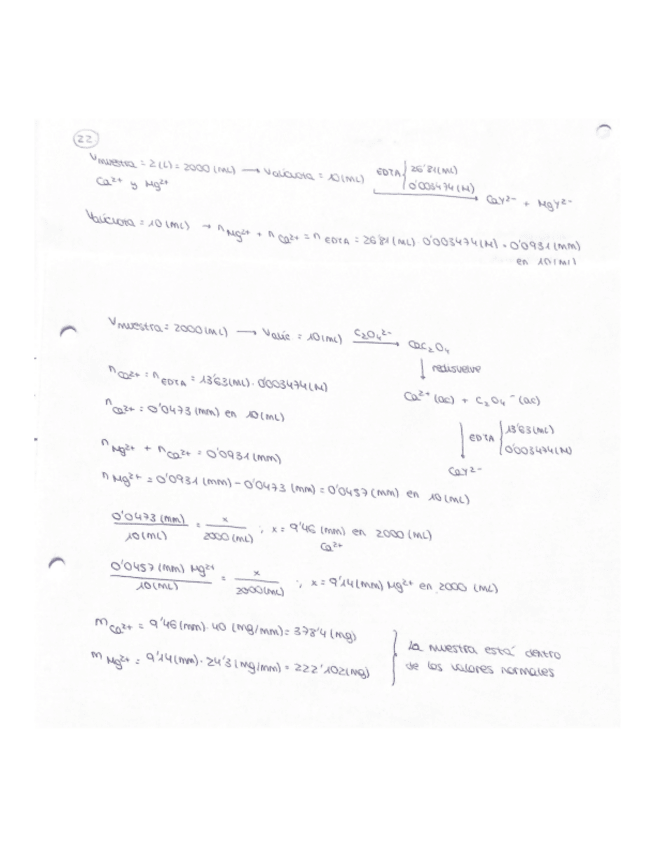 22
Vmuestra = 2(L) = 2000 (mL) → Valícuota = 10 (mL) EDTA | 26'81 (mL)
0'003474 (M)
Ca²⁺ y Mg²⁺
CaY²⁻ + MgY²⁻
Valícuota = 10 (mL) → nMg²⁺ + nCa²⁺ = nEDTA = 26'81 (mL) 0'003474 (M) = 0'0931 (mm)
en 10 (mL)
Vmuestra = 2000 (mL) → Valíc = 10 (mL) C₂O₄²⁻ → CaC₂O₄
↓ redisuelve
nCa²⁺ = nEDTA = 13'63 (mL) · 0'003474 (M)
Ca²⁺ (ac) + C₂O₄⁻ (ac)
nCa²⁺ = 0'0473 (mm) en 10 (mL)
↓ EDTA | 13'63 (mL)
0'003474 (M)
nMg²⁺ + nCa²⁺ = 0'0931 (mm)
CaY²⁻
nMg²⁺ = 0'0931 (mm) - 0'0473 (mm) = 0'0457 (mm) en 10 (mL)
0'0473 (mm) / 10 (mL) = x / 2000 (mL) ; x = 9'46 (mm) en 2000 (mL)
Ca²⁺
0'0457 (mm) Mg²⁺ / 10 (mL) = x / 2000 (mL) ; x = 9'14 (mm) Mg²⁺ en 2000 (mL)
mCa²⁺ = 9'46 (mm) · 40 (mg/mm) = 378'4 (mg)
mMg²⁺ = 9'14 (mm) · 24'3 (mg/mm) = 222'102 (mg)
La muestra está dentro
de los valores normales